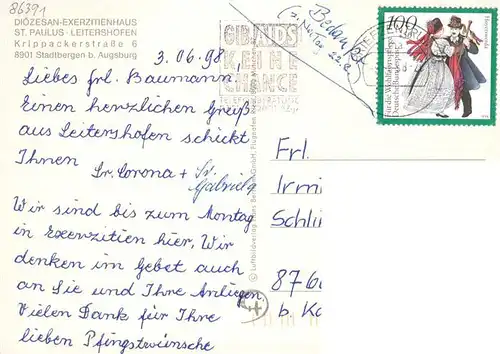 86391
DIÖZESAN-EXERZITIENHAUS
ST. PAULUS · LEITERSHOFEN
Krippackerstraße 6
8901 Stadtbergen b. Augsburg
3.06.98
Liebes frl. Baumann.
Einen herzlichen Gruß
aus Leitershofen schickt
Ihnen
Sr. Corona + Sr. Gabriela
Wir sind bis zum Montag
in Exerzitien hier, Wir
denken im Gebet auch
an Sie und Ihre Anliegen.
Vielen Dank für Ihre
lieben Pfingstwünsche
GIB AIDS
KEINE
CHANCE
100
Für die Wohlfahrtspflege
Deutsche Bundespost
Frl.
Irmi
Schli
876
b. Ka